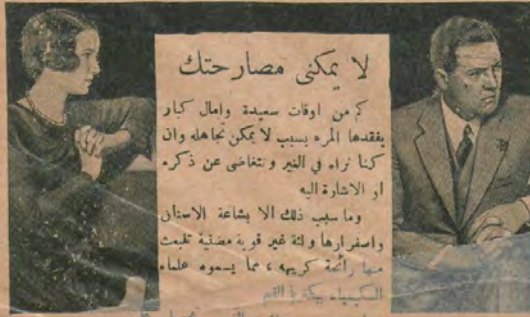 لا يمكنى مصارحتك
كم من اوقات سعيدة وامال كبار
يفقدها المرء بسبب لا يمكن تجاهله وان
كنا نراه في الغير ونتغاضى عن ذكره
او الاشارة اليه
وما سبب ذلك الا بشاعة الاسنان
واصفرارها ولثة غير قوية مضنية تنبعث
منها رائحة كريهه ، مما يسموه علماء
الكيمياء بيكتريا الفم